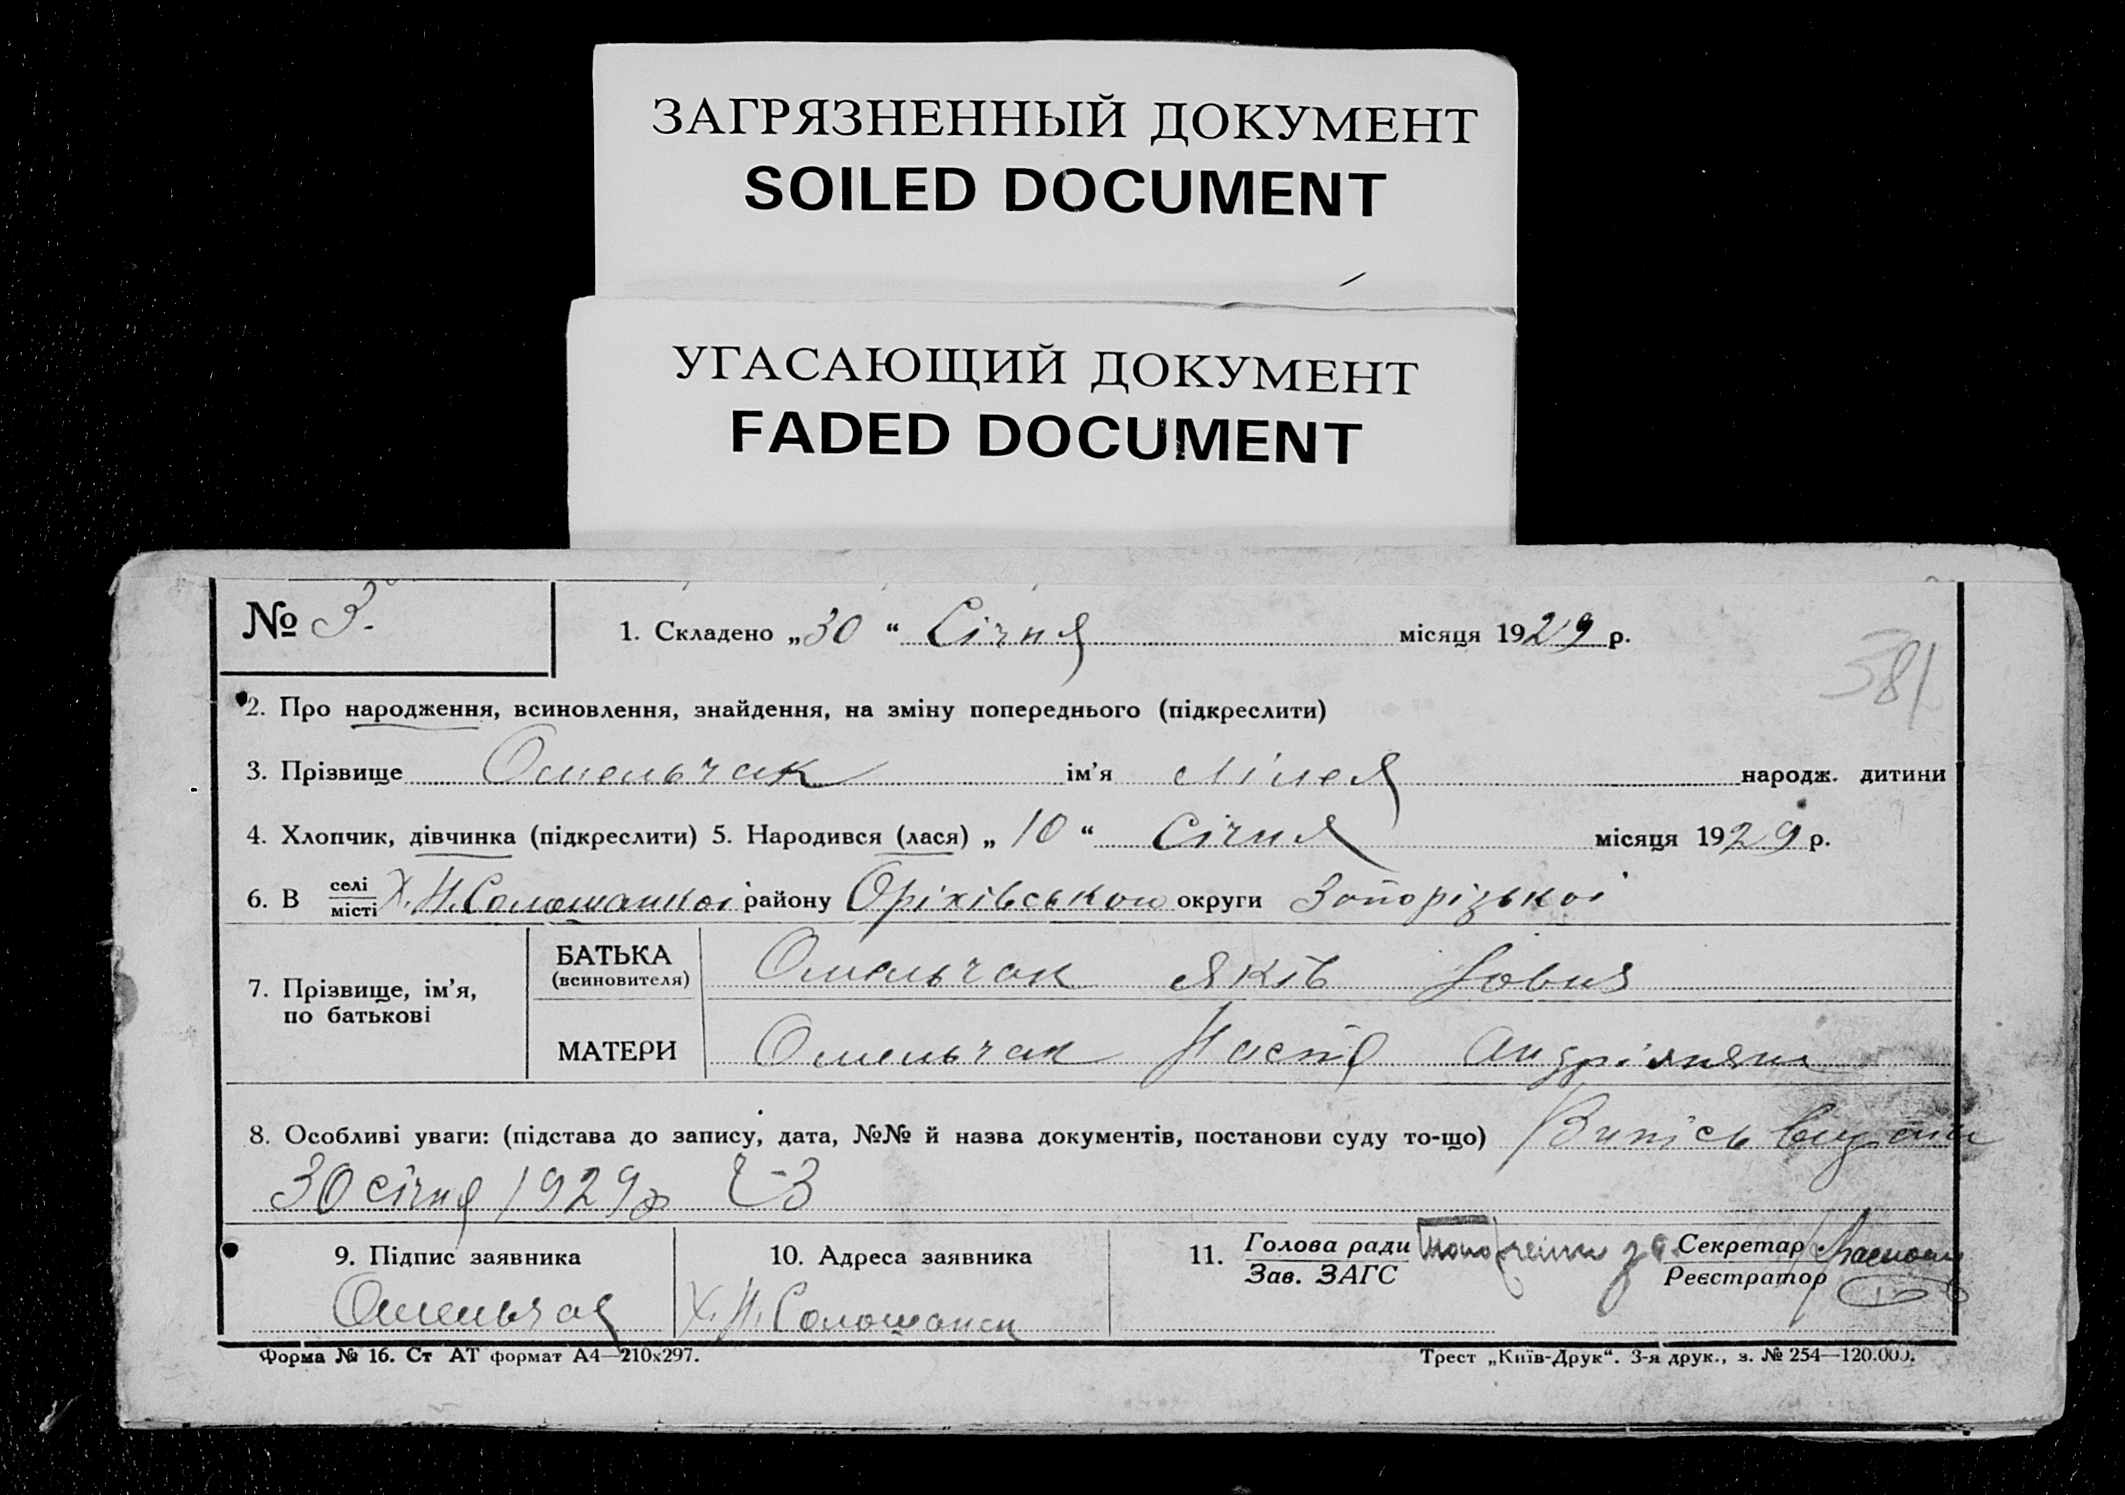 ЗАГРЯЗНЕННЫЙ ДОКУМЕНТ
SOILED DOCUMENT
УГАСАЮЩИЙ ДОКУМЕНТ
FADED DOCUMENT
№ 3.
1. Складено „30“ Січня місяця 1929 р.
381
2. Про народження, всиновлення, знайдення, на зміну попереднього (підкреслити)
3. Прізвище Омельчак ім’я Лілея народж. дитини
4. Хлопчик, дівчинка (підкреслити) 5. Народився (лася) „10“ Січня місяця 1929 р.
6. В селі/місті Х. Н. Соломанкоі району Оріхівського округи Запорізькоі
7. Прізвище, ім’я, по батькові
БАТЬКА (всиновителя) Омельчак Яків
МАТЕРИ Омельчак Настя
8. Особливі уваги: (підстава до запису, дата, №№ й назва документів, постанови суду то-що) Випісь
30 січня 1929 р Ч-3
9. Підпис заявника
Омельчак
10. Адреса заявника
Х. Н.
11. Голова ради
Зав. ЗАГС
Секретар
Реєстратор
Форма № 16. Ст АТ формат А4—210х297.
Трест „Київ-Друк“. 3-я друк., з. № 254—120.000.